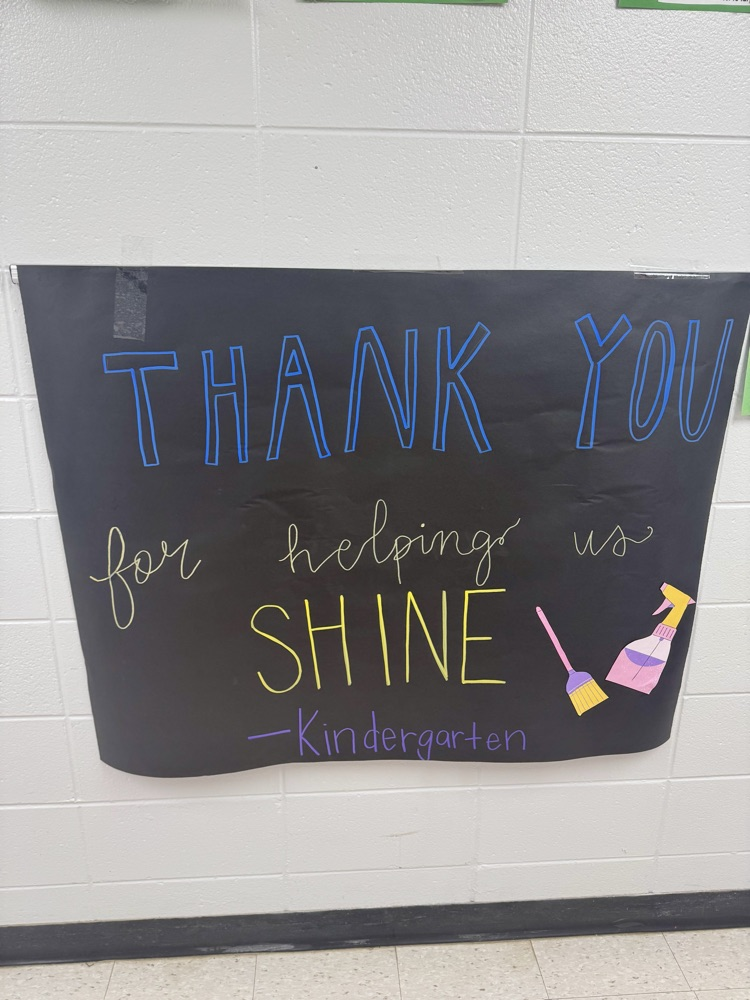 THANK YOU
for helping us
SHINE
-Kindergarten